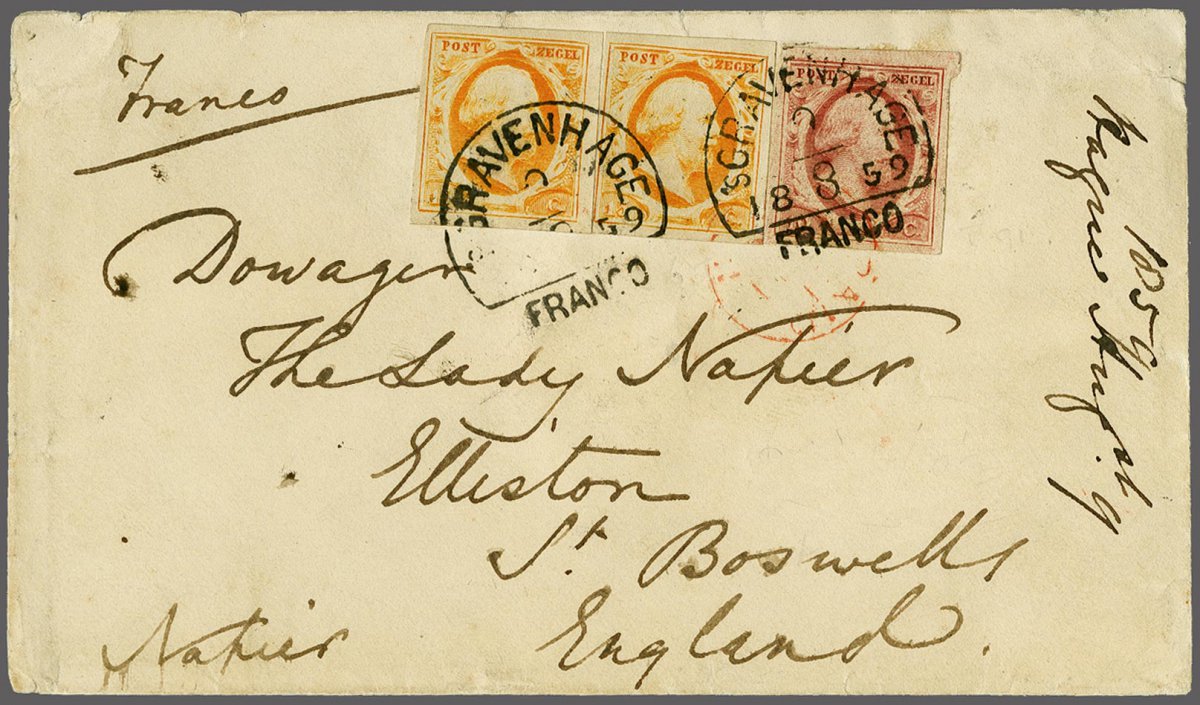 POST ZEGEL POST ZEGEL POST ZEGEL
Franco
'sGRAVENHAGE
'sGRAVENHAGE
9
8
18 59
FRANCO
FRANCO
Dowager
The Lady Napier
Elliston
St. Boswells
England.
Napier
Hague August 9
1859